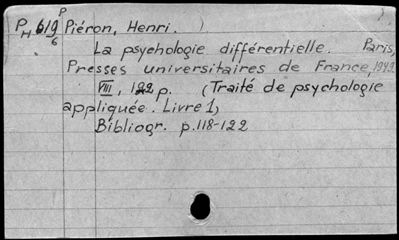 P
PH 619 Piéron, Henri.
6
La psychologie différentielle. Paris,
Presses universitaires de France, 1949
VIII, 122 p. (Traité de psychologie
appliquée. Livre 1,
Bibliogr. p.118-122